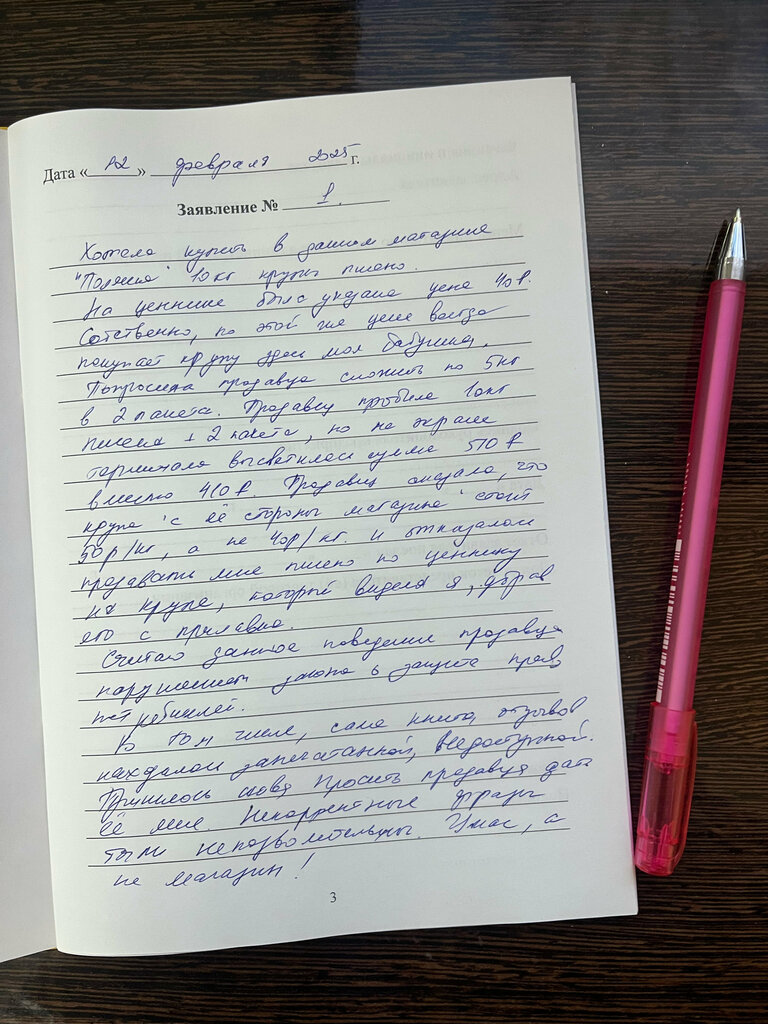 Дата «12» февраля 2025 г.
Заявление № 1.
Хотела купить в данном магазине
"Поляна" 10 кг крупы пшено.
На ценнике была указана цена 40 ₽.
Собственно, по этой же цене всегда
покупает крупу здесь моя бабушка.
Попросила продавца сложить по 5 кг
в 2 пакета. Продавец пробила 10 кг
пшена + 2 пакета, но на экране
терминала высветилась сумма 510 ₽
вместо 410 ₽. Продавец сказала, что
крупа "с её стороны магазина" стоит
50 р/кг, а не 40 р/кг и отказалась
продавать мне пшено по ценнику
на крупе, который видела я, убрав
его с прилавка
Считаю данное поведение продавца
нарушением закона о защите прав
потребителей.
В том числе, сама книга отзывов
находилась запечатанной, недоступной.
Пришлось просить продавца дать
её мне. Некорректные фразы
были непозволительны. Ужас, а
не магазин!
3